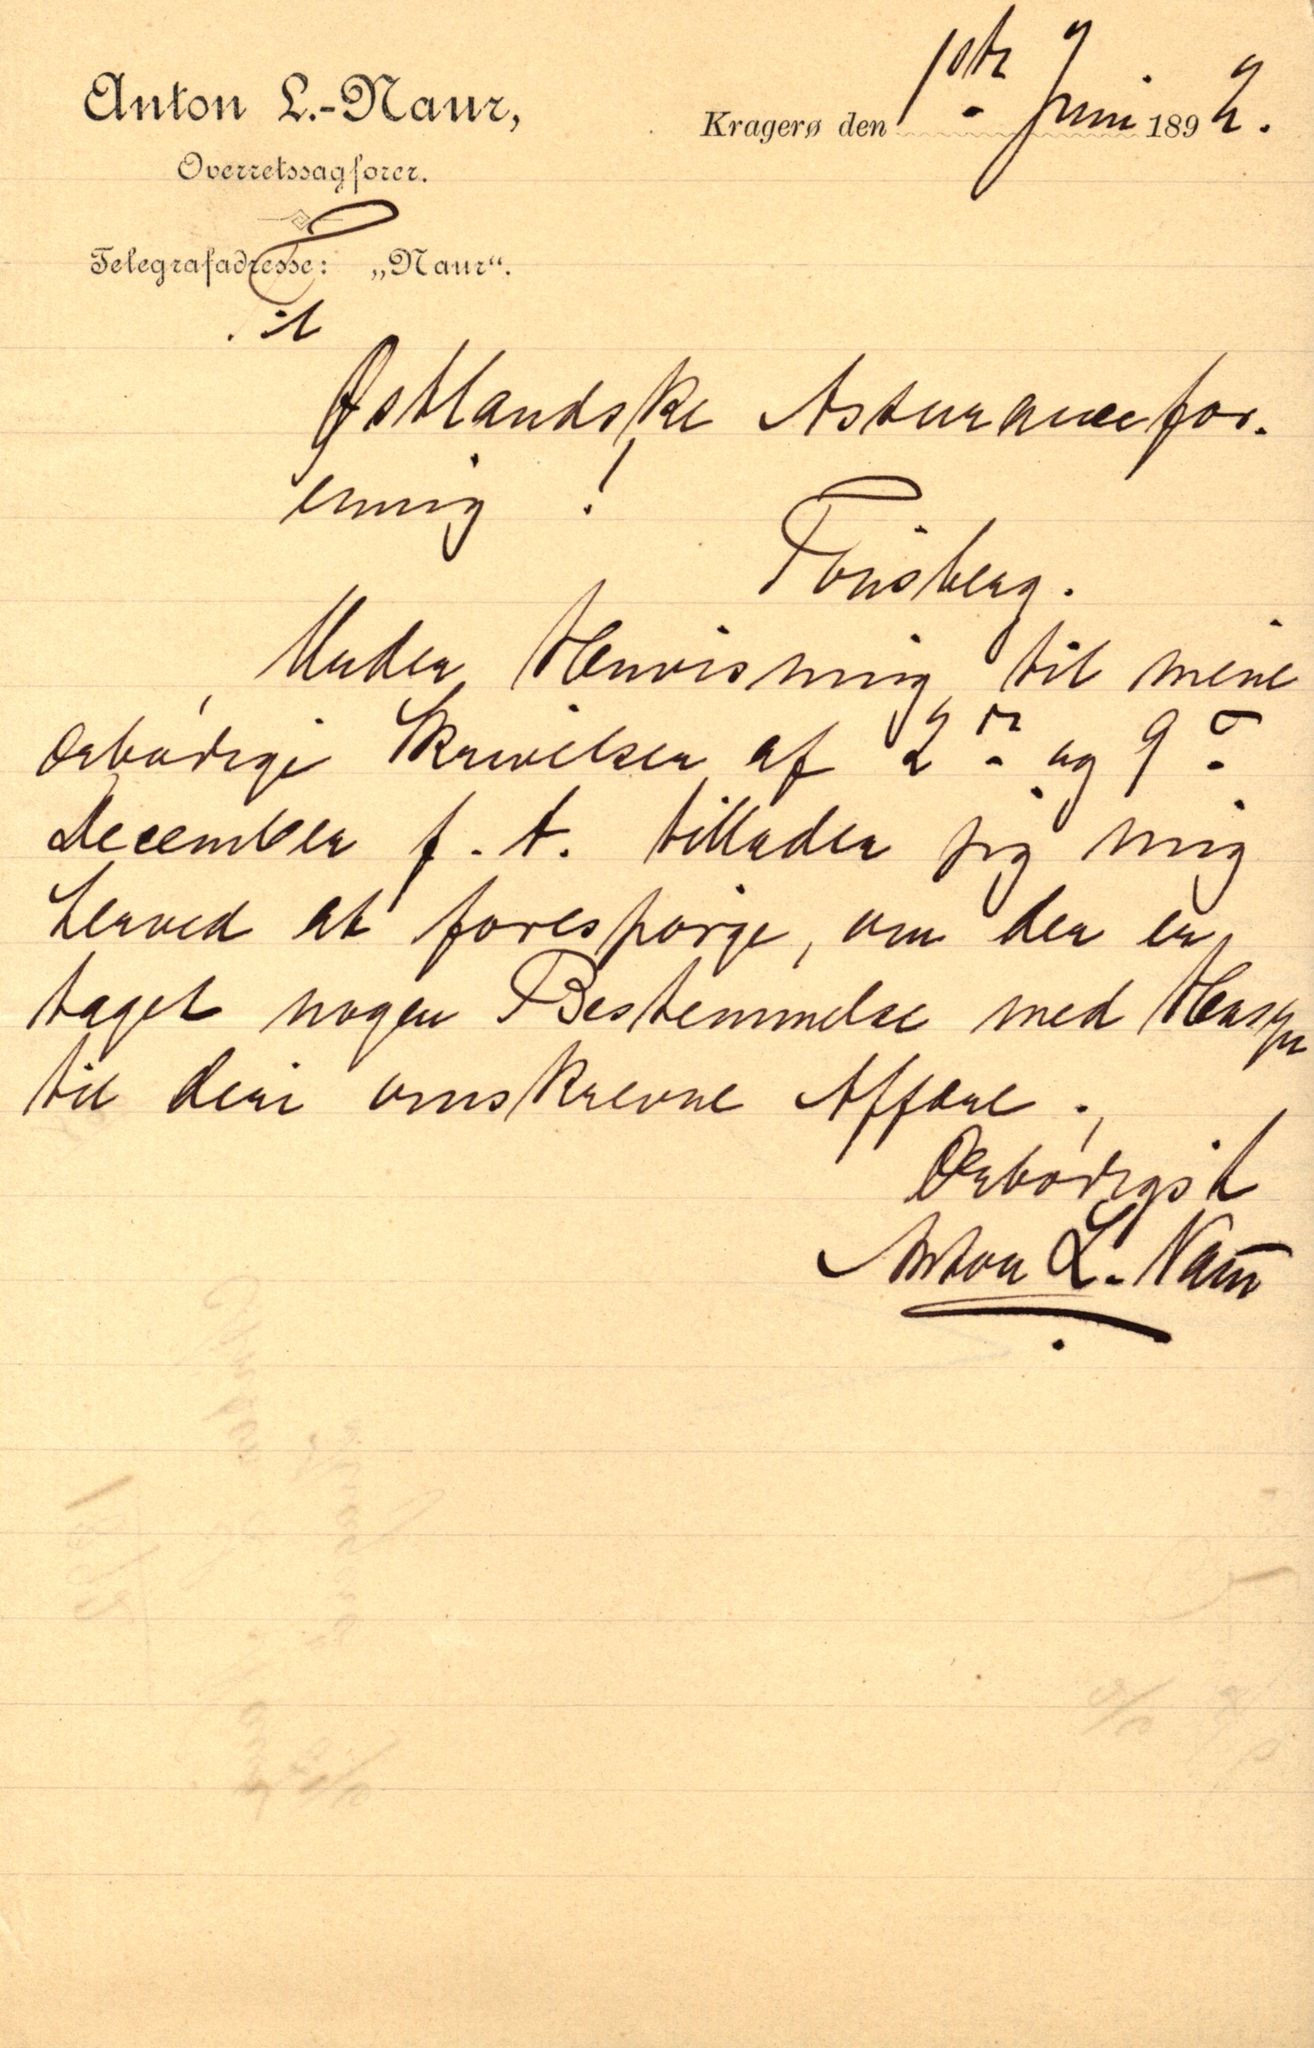 Anton L.-Naur,
Overretssagfører.
Telegrafadresse: „Naur“.
Kragerø den 1ste Juni 1892.
Til
Østlandske Assurancefor-
ening!
Tønsberg.
Under Henvisning til mine
ærbødige Skrivelser af 2den og 9de
December f. A. tillader jeg mig
herved at forespørge, om der er
taget nogen Bestemmelse med Hensyn
til deri omskrevne Affære.
Ærbødigst
Anton L. Naur